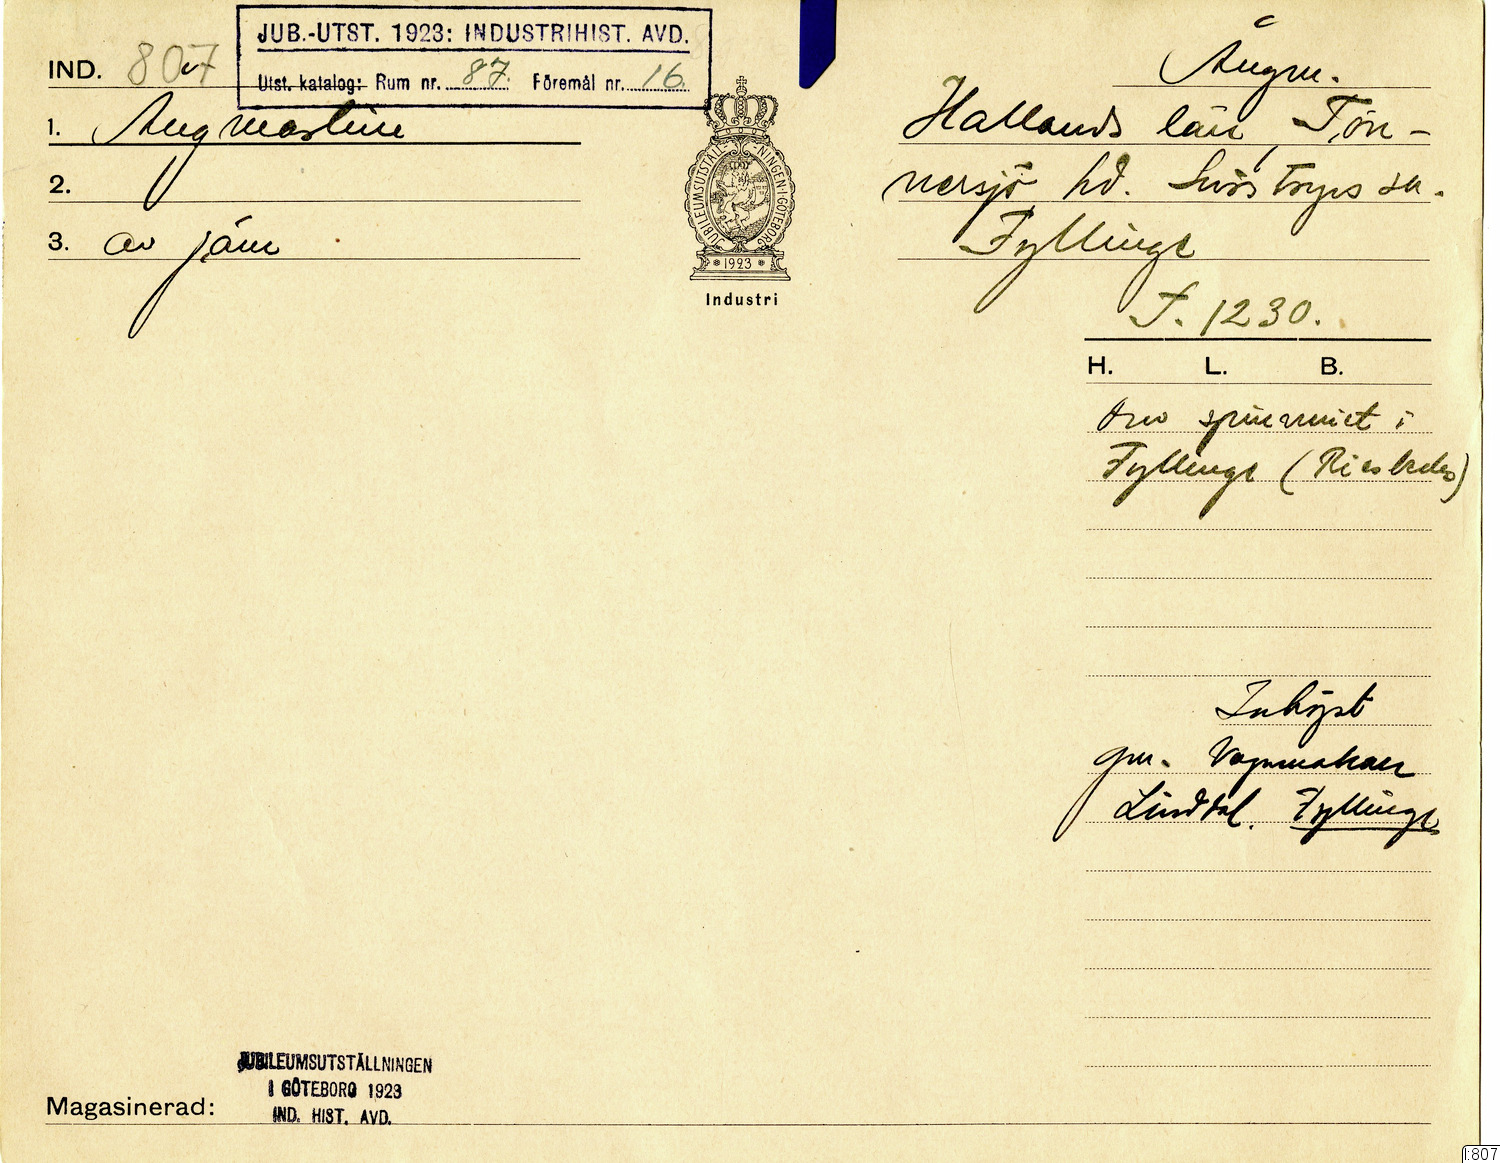 JUB.-UTST. 1923: INDUSTRIHIST. AVD.
Utst. katalog: Rum nr. 87. Föremål nr. 16.
IND. 807
1. Ångmaskin
2.
3. av järn
JUBILEUMSUTSTÄLL-NINGEN·I·GÖTEBORG
1923
Industri
Ångm.
Hallands län, Tön-
nersjö hd. Snöstorps sn.
Fyllinge
F. 1230.
H. L. B.
spinneriet i
Fyllinge (Rieslades)
Inköpt
gm. Vagnmakare
Linddal. Fyllinge
JUBILEUMSUTSTÄLLNINGEN
I GÖTEBORG 1923
IND. HIST. AVD.
Magasinerad:
I:807